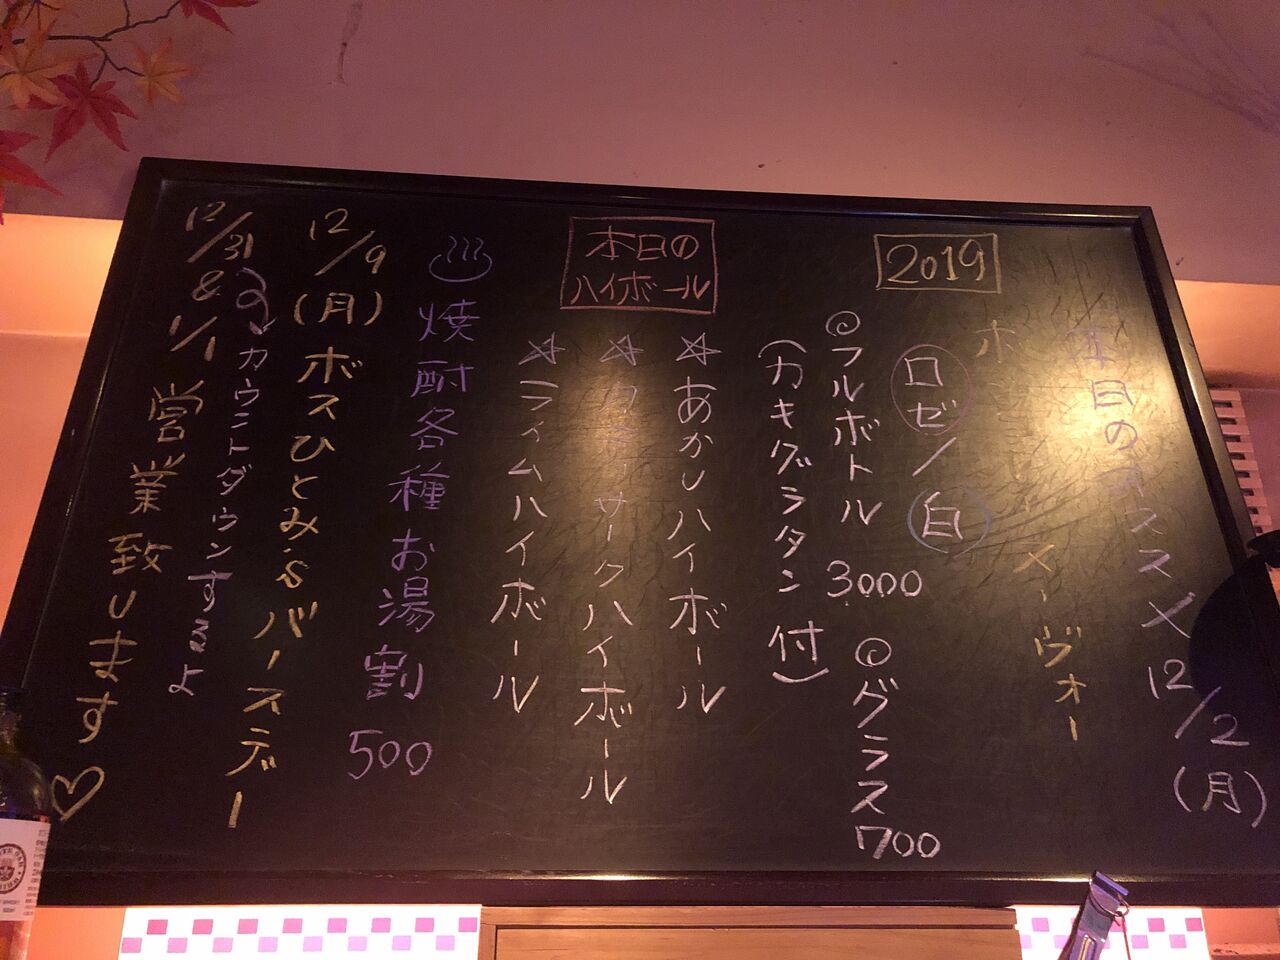 本日のオススメ 12/2(月)
2019
ヌーヴォー
ロゼ/白
◎フルボトル 3000
◎グラス 700
(カキグラタン付)
本日の
ハイボール
☆あかしハイボール
☆カティサークハイボール
☆ライムハイボール
♨焼酎各種お湯割 500
12/9(月)ボスひとみ.sバースデー
12/31&1/1営業致します♡
の カウントダウンするよ